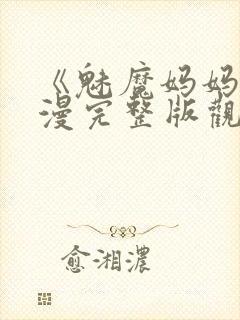 《魅魔妈妈
漫完整版觀
愈湘濃